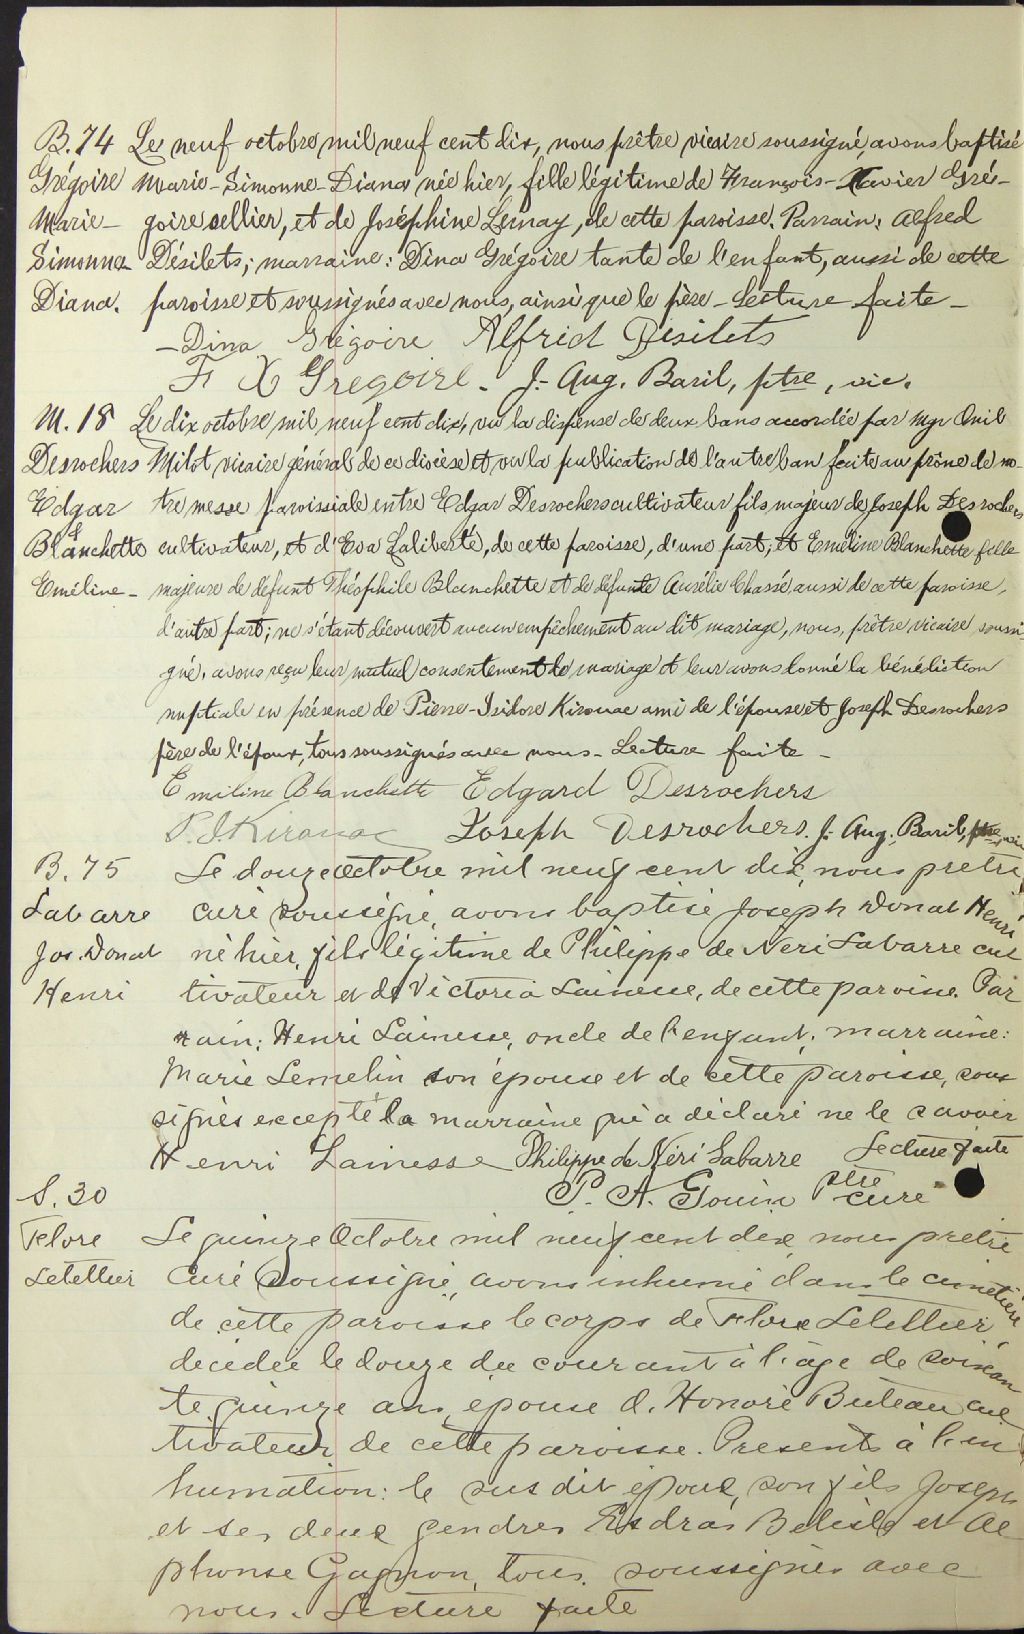 B.74 Le neuf octobre mil neuf cent dix, nous prêtre vicaire soussigné, avons baptisé
Grégoire Marie-Simonne-Diana née hier, fille légitime de François-Xavier Gré-
Marie- goire sellier, et de Joséphine Lemay, de cette paroisse. Parrain: Alfred
Simonne- Désilets; marraine: Dina Grégoire tante de l'enfant, aussi de cette
Diana. paroisse et soussignés avec nous, ainsi que le père - Lecture faite -
- Dina Grégoire Alfrid Désilets
F X Gregoire. J.-Aug. Baril, ptre, vic.
M. 18 Le dix octobre mil neuf cent dix, vu la dispense de deux bans accordée par Mgr
Desrochers Milot vicaire général de ce diocèse et vu la publication de l'autre ban faite au prône de no-
Edgar tre messe paroissiale entre Edgar Desrochers cultivateur fils majeur de Joseph Desrochers
& Blanchette cultivateur, et d'Eva Laliberté, de cette paroisse, d'une part; et Eméline Blanchette fille
Eméline - majeure de défunt Théophile Blanchette et de défunte Aurélie Chassé, aussi de cette paroisse,
d'autre part; ne s'étant découvert aucun empêchement au dit mariage, nous, prêtre vicaire soussi
gné, avons reçu leur mutuel consentement de mariage et leur avons donné la bénédiction
nuptiale en présence de Pierre-Isidore Kirouac ami de l'épouse et Joseph Desrochers
père de l'époux, tous soussignés avec nous - Lecture faite -
Emiline Blanchette Edgard Desrochers
P. I. Kirouac Joseph Desrochers. J.-Aug. Baril, ptre, vic
B. 75 Le douze octobre mil neuf cent dix, nous prêtre
Labarre curé soussigné, avons baptisé Joseph Donat Henri
Jos. Donat né hier, fils légitime de Philippe de Néri Labarre cul
Henri tivateur et de Victoria Lainesse, de cette paroisse. Par
rain: Henri Lainesse, oncle de l'enfant; marraine:
Marie Lemelin son épouse et de cette paroisse, sous
signés excepté la marraine qui a déclaré ne le savoir
Henri Lainesse Philippe de Néri Labarre Lecture faite
P. A. Gouin ptre curé
S. 30
Flore Le quinze Octobre mil neuf cent dix, nous prêtre
Letellier Curé soussigné, avons inhumé dans le cimetière
de cette paroisse le corps de Flore Letellier,
décédée le douze du courant à l'âge de soixan
te quinze ans, épouse d'Honoré Buteau cul
tivateur de cette paroisse. Présents à l'in
humation: le sus dit époux, son fils Joseph
et ses deux gendres Esdras Belisle et Al
phonse Gagnon, tous soussignés avec
nous. Lecture faite